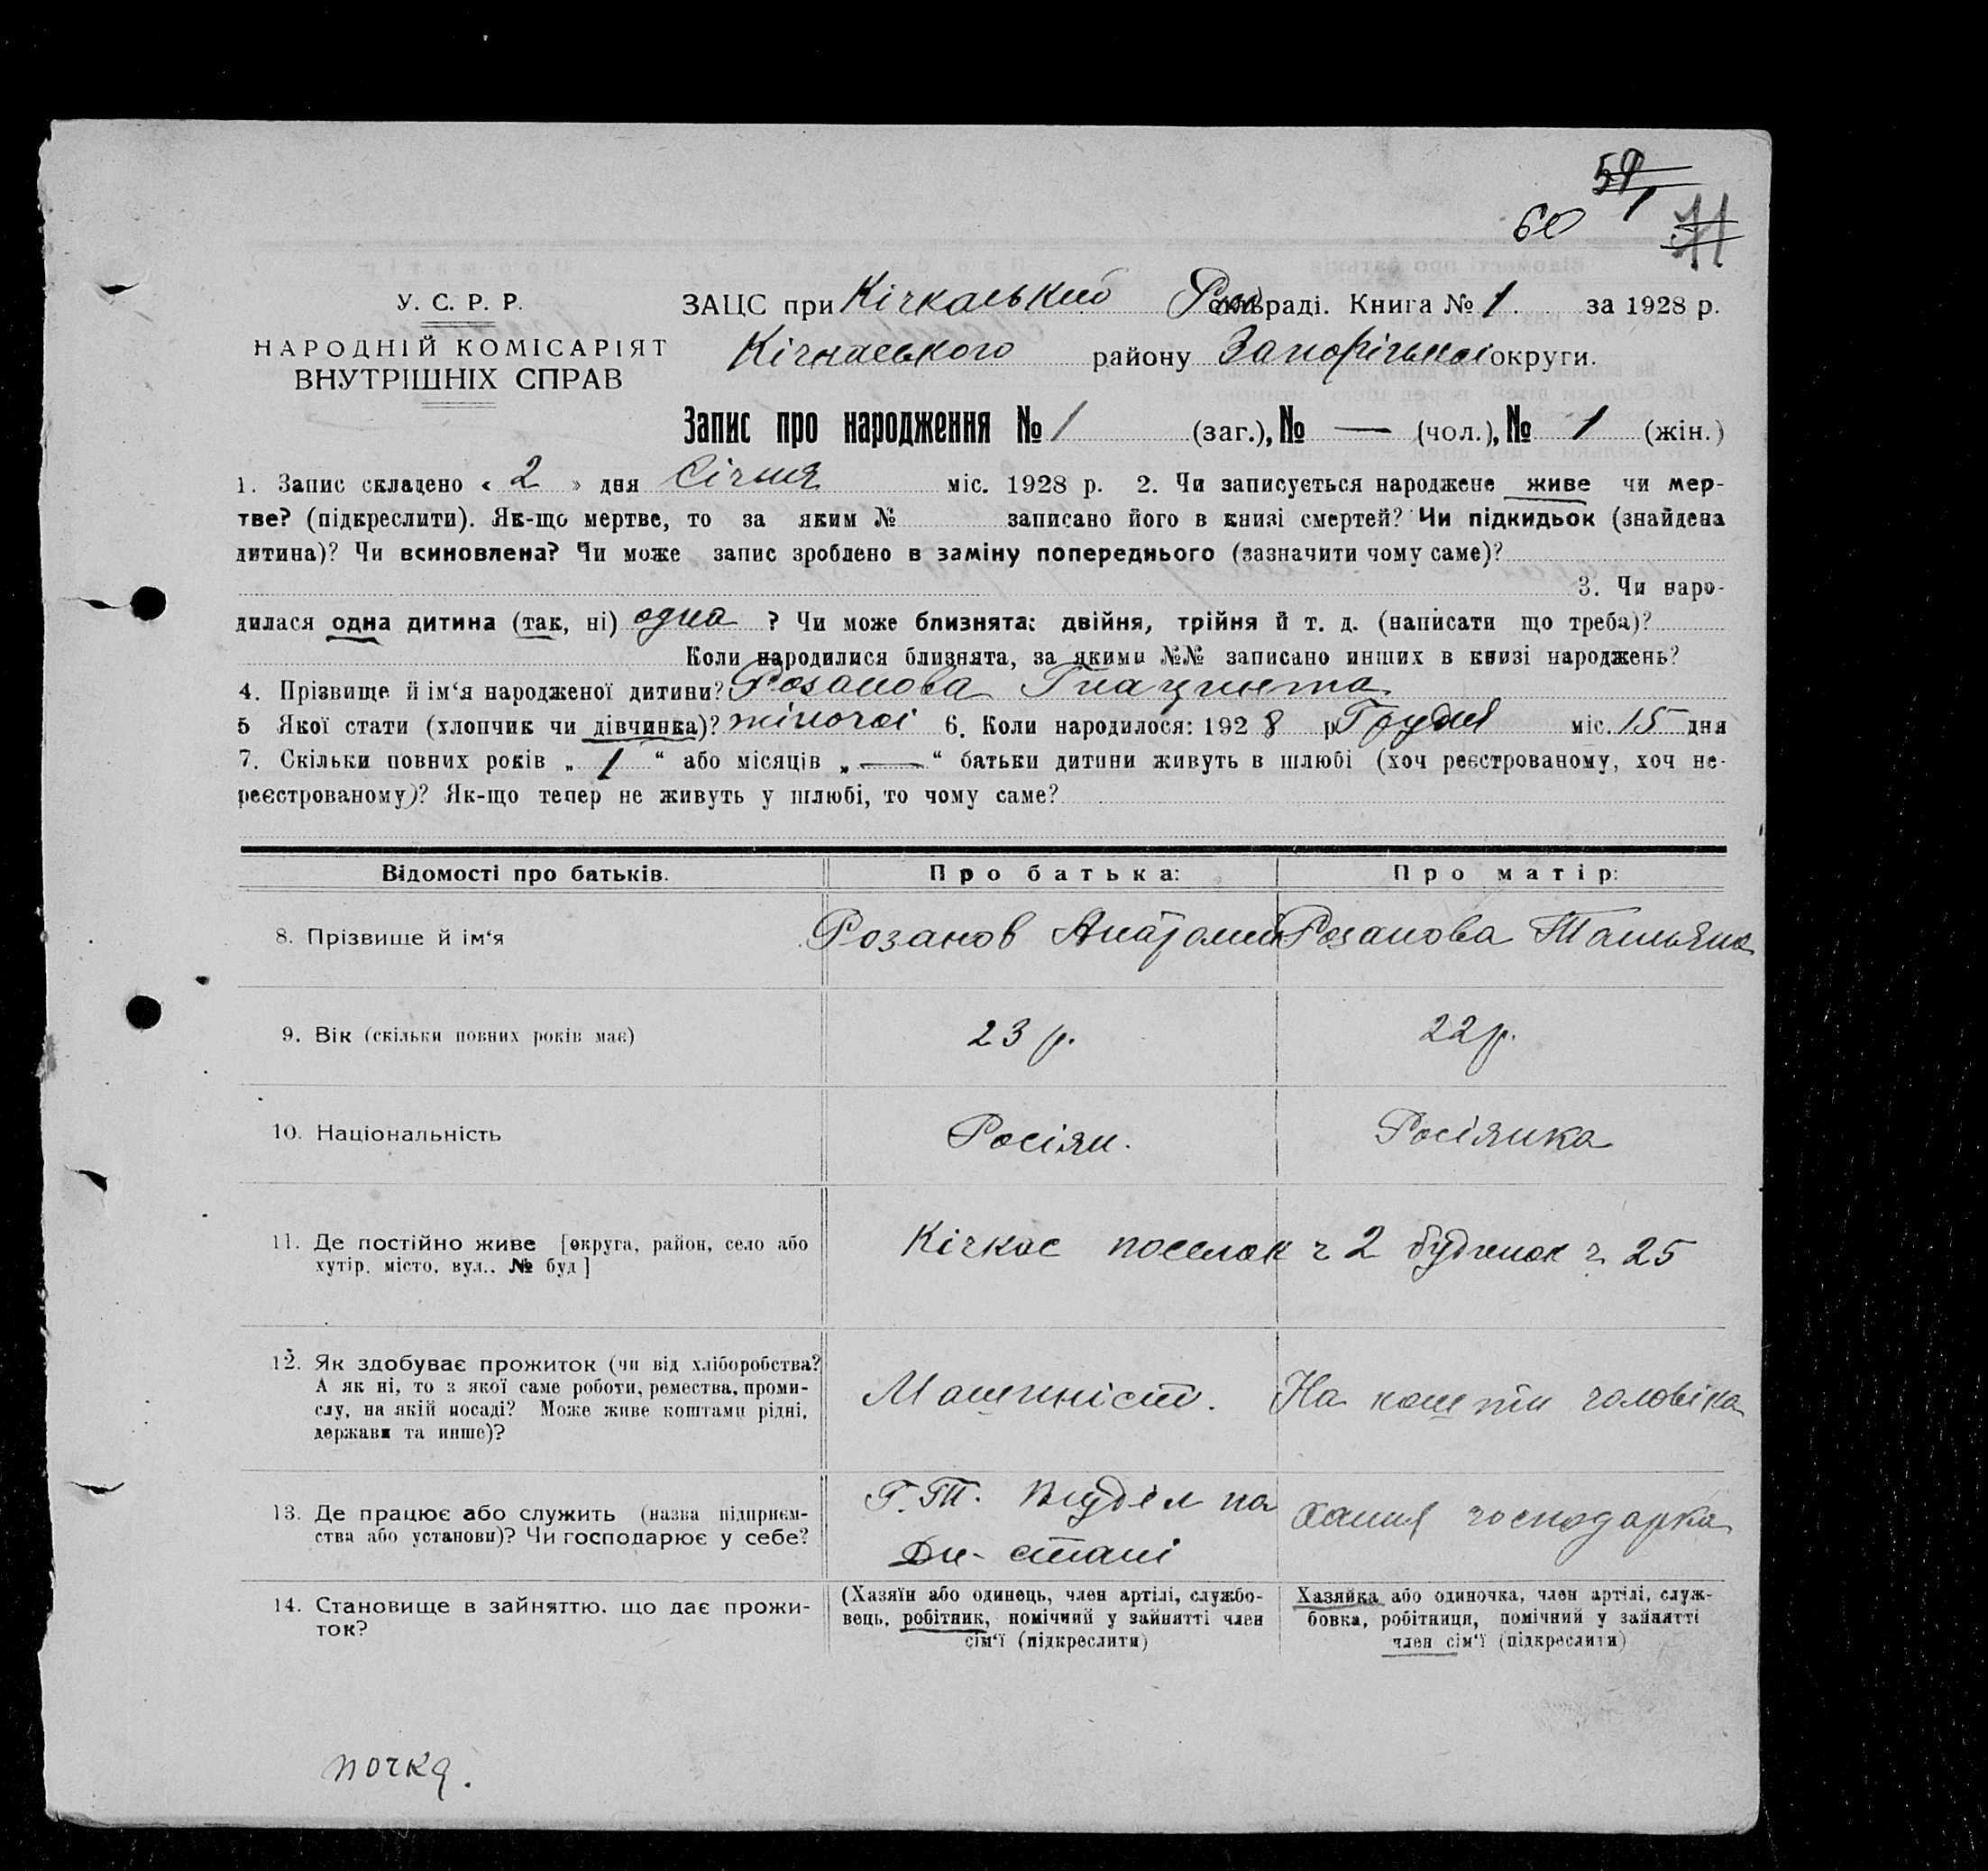 59/1
60 71
У. С. Р. Р.
НАРОДНІЙ КОМІСАРІЯТ
ВНУТРІШНІХ СПРАВ
ЗАЦС при Кічкаський раді. Книга № 1. за 1928 р.
Кічкаського району Запорізької округи.
Запис про народження № 1 (заг.), № — (чол.), № 1 (жін.)
1. Запис складено « 2 » дня Січня міс. 1928 р. 2. Чи записується народжене живе чи мер-
тве? (підкреслити). Як-що мертве, то за яким № записано його в книзі смертей? Чи підкидьок (знайдена
дитина)? Чи всиновлена? Чи може запис зроблено в заміну попереднього (зазначити чому саме)?
3. Чи наро-
дилася одна дитина (так, ні) одна ? Чи може близнята: двійня, трійня й т. д. (написати що треба)?
Коли народилися близнята, за якими №№ записано инших в книзі народжень?
4. Прізвище й ім‘я народженої дитини? Розанова Гиацинта
5 Якої стати (хлопчик чи дівчинка)? жіночої 6. Коли народилося: 1928 р Грудня міс. 15 дня
7. Скільки повних років „ 1 “ або місяців „ — “ батьки дитини живуть в шлюбі (хоч реєстрованому, хоч не-
реєстрованому)? Як-що тепер не живуть у шлюбі, то чому саме?
Відомості про батьків. Про батька: Про матір:
8. Прізвище й ім‘я Розанов Анатолий Розанова Татьяна
9. Вік (скільки повних років має) 23 р. 22 р.
10. Національність Росіян. Росіянка
11. Де постійно живе [округа, район, село або
хутір, місто, вул., № буд] Кічкас поселок ч 2 будинок ч 25
12. Як здобуває прожиток (чи від хліборобства?
А як ні, то з якої саме роботи, ремества, проми-
слу, на якій посаді? Може живе коштами рідні,
держави та инше)? Машиніст. На кошти чоловіка
13. Де працює або служить (назва підприєм-
ства або установи)? Чи господарює у себе? Г.Т. на
стані
господарка
14. Становище в зайняттю, що дає прожи-
ток?
(Хазяїн або одинець, член артілі, службо-
вець, робітник, помічний у зайнятті член
сім‘ї (підкреслити)
Хазяйка або одиночка, член артілі, служ-
бовка, робітниця, помічний у зайнятті
член сім‘ї (підкреслити)